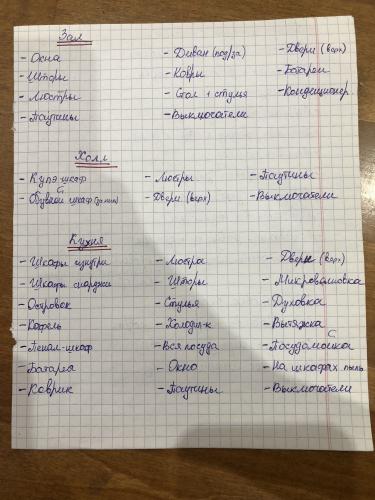 Зал
- Окна - Диван (под/за) - Двери (верх)
- Шторы - Ковры - Батареи
- Люстры - Стол + стулья - Кондиционер
- Паутины - Выключатели
Холл
- Купэ шкаф - Люстры - Паутины
- Обувной шкаф - Двери (верх) - Выключатели
Кухня
- Шкафы изнутри - Люстра - Двери (верх)
- Шкафы снаружи - Шторы - Микроволновка
- Островок - Стулья - Духовка
- Кафель - Холодил-к - Вытяжка
- Пенал-шкаф - Вся посуда - Посудомойка
- Батарея - Окно - На шкафах пыль
- Коврик - Паутины - Выключатели